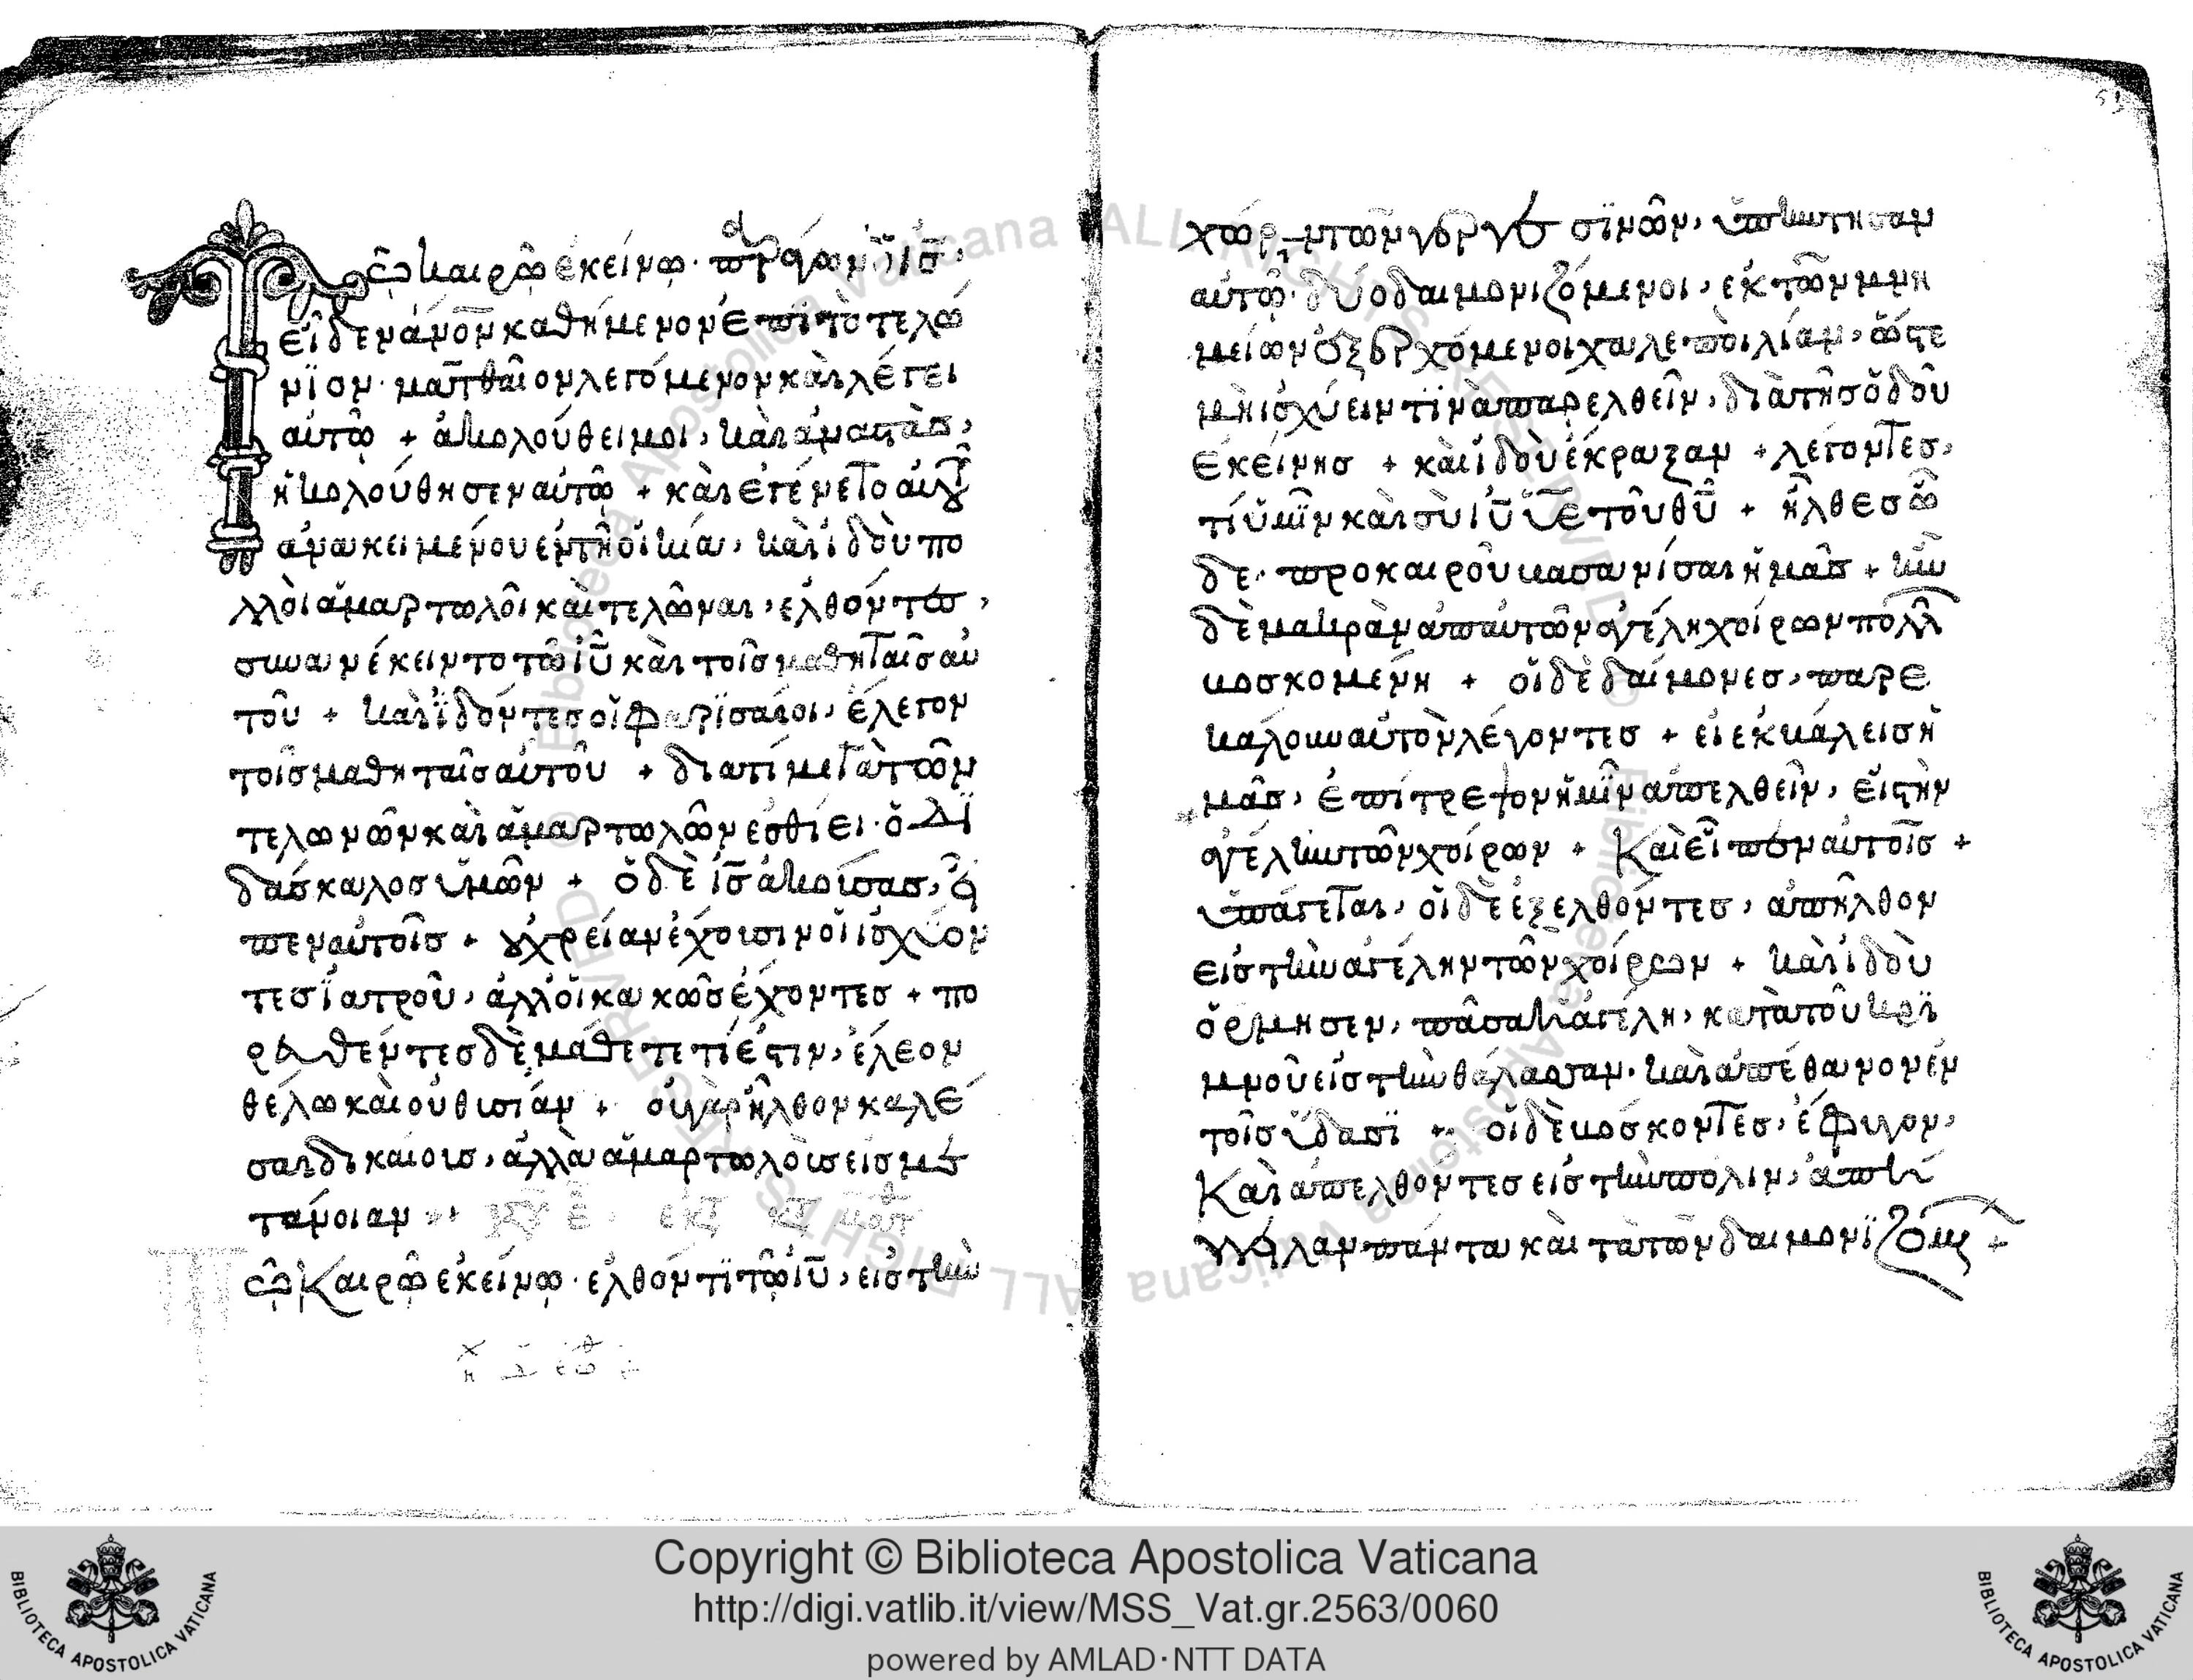 Τῶ καιρῶ ἐκείνω· παράγων ὁ ις̅,
εἶδεν ἄνον καθήμενον ἐπὶ τὸ τελώ
νϊον· ματθαῖον λεγόμενον καὶ λέγει
αὐτῶ + ἀκολούθει μοι, καὶ ἀναστὰς,
ἠκολούθησεν αὐτῶ + καὶ ἐγένετο αὐτοῦ
ἀνακειμένου ἐν τῆ οἰκία, καὶ ἰδοὺ πο
λλοὶ ἁμαρτωλοὶ καὶ τελῶναι, ἐλθόντες,
συνανέκειντο τῶ ιυ̅ καὶ τοῖς μαθηταῖς αὐ
τοῦ + καὶ ἰδόντες οἱ φαρϊσαῖοι, ἔλεγον
τοῖς μαθηταῖς αὐτοῦ + διατί μετὰ τῶν
τελωνῶν καὶ ἁμαρτωλῶν ἐσθίει· ὁ δϊ
δάσκαλος ὑμῶν + ὁ δὲ ις̅ ἀκούσας, εἶ
πεν αὐτοῖς + οὐ χρείαν ἔχουσιν οἱ ἰσχύον
τες ϊατροῦ, ἀλλ' οἱ κακῶς ἔχοντες + πο
ρευθέντες δὲ μάθετε τί ἐστιν, ἔλεον
θέλω καὶ οὐ θυσίαν + οὐ γὰρ ἦλθον καλέ
σαι δικαίους, ἀλλὰ ἁμαρτωλοὺς εἰς με
τάνοιαν
τῶ Καιρῶ ἐκείνω· ἐλθόντϊ τῶ ιυ̅, εἰς τὴν
χώραν τῶν γεργεσϊνῶν, ὑπήντησαν
αὐτῶ· δύο δαιμονιζόμενοι, ἐκ τῶν μνη
μείων ἐξερχόμενοι χαλεποὶ λίαν, ὥστε
μὴ ἰσχύειν τϊνὰ παρελθεῖν, διὰ τῆς ὁδοῦ
ἐκείνης + καὶ ἰδοὺ ἔκραξαν + λέγοντες,
τί ὑμῖν καὶ σὺ ιυ̅ υἱὲ τοῦ θυ̅ + ἦλθες ὧ
δε· προ καιροῦ βασανίσαι ἡμᾶς + ἦν
δὲ μακρὰν ἀπ' αὐτῶν ἀγέλη χοίρων πολλῶν
βοσκομένη + οἱ δὲ δαίμονες, παρε
κάλουν αὐτὸν λέγοντες + εἰ ἐκβάλεις ἡ
μᾶς, ἐπίτρεψον ἡμῖν ἀπελθεῖν, εἰς τὴν
ἀγέλην τῶν χοίρων + Καὶ εἶπεν αὐτοῖς +
ὑπάγεται, οἱ δὲ ἐξελθόντες, ἀπῆλθον
εἰς τὴν ἀγέλην τῶν χοίρων + καὶ ἰδοὺ
ὅρμησεν, πᾶσα ἡ ἀγέλη, κατὰ τοῦ κρϊ
μνοῦ εἰς τὴν θάλασσαν· καὶ ἀπέθανον ἐν
τοῖς ὕδασϊ + οἱ δὲ βόσκοντες, ἔφυγον,
Καὶ ἀπελθόντες εἰς τὴν πόλιν, ἀπή
γγειλαν πάντα καὶ τὰ τῶν δαιμονϊζομένων +
Copyright © Biblioteca Apostolica Vaticana
http://digi.vatlib.it/view/MSS_Vat.gr.2563/0060
powered by AMLAD·NTT DATA
BIBLIOTECA APOSTOLICA VATICANA
BIBLIOTECA APOSTOLICA VATICANA